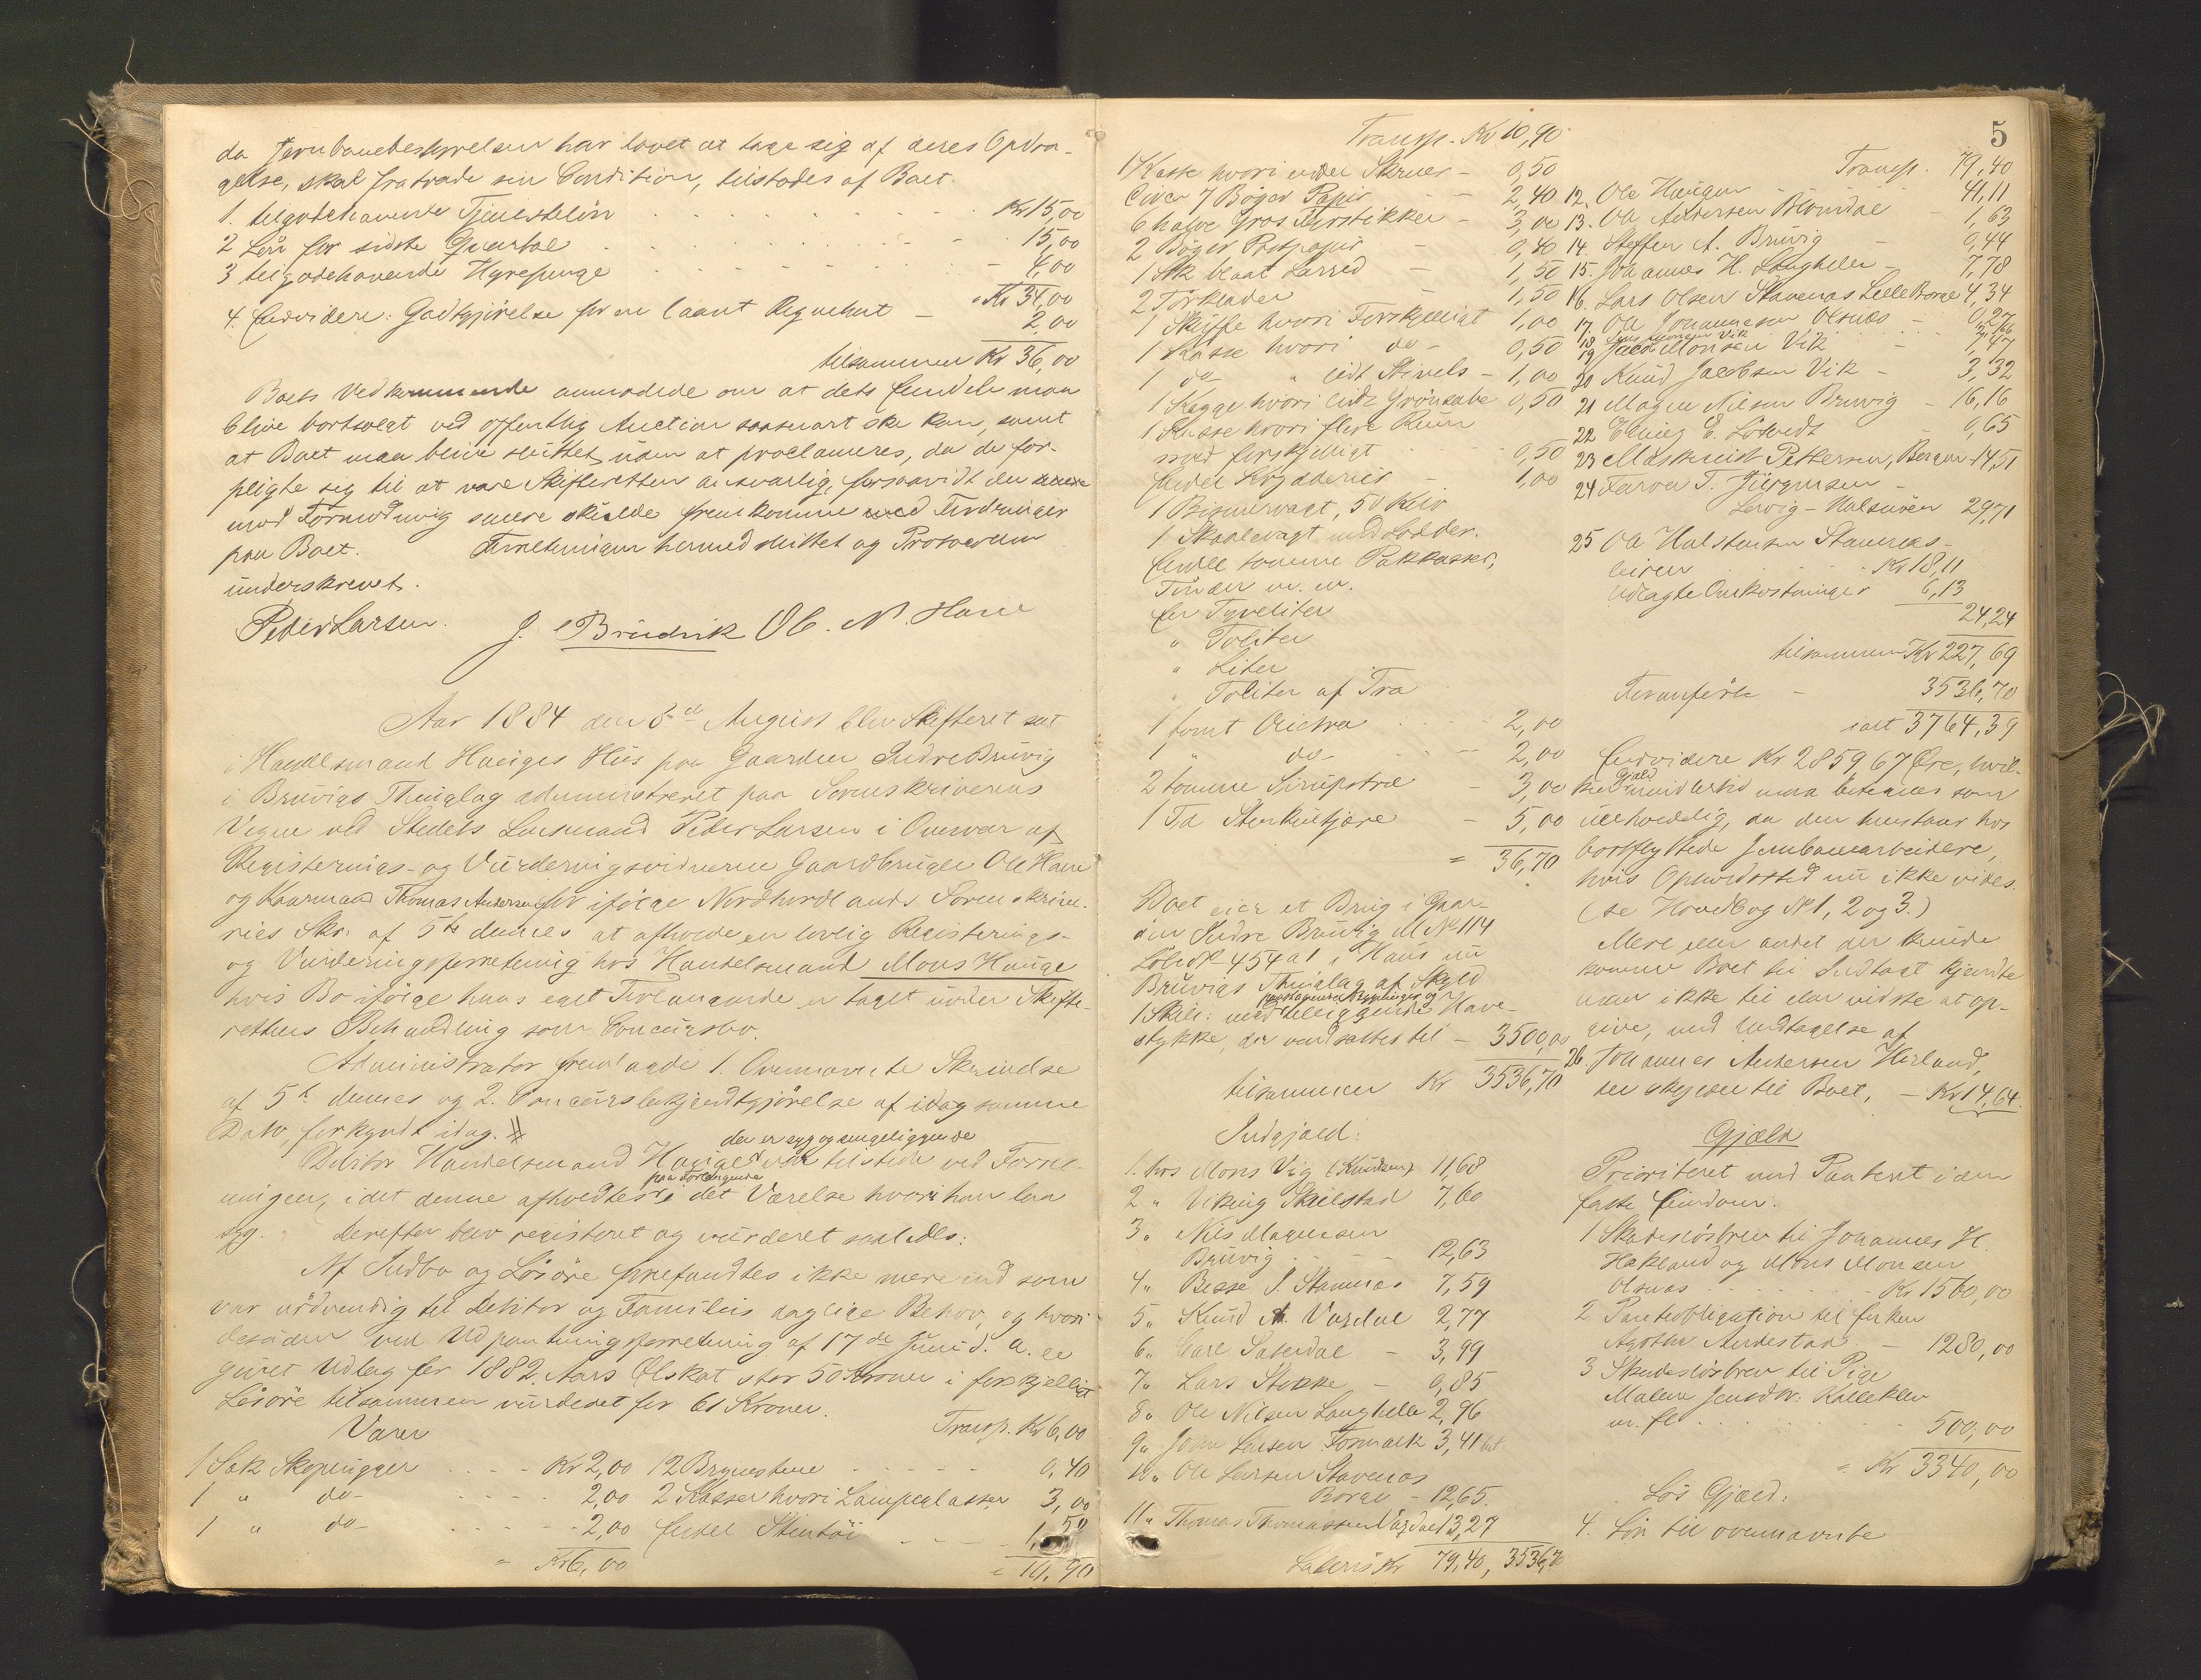 da Jernbanebestyrelsen har lovet at tage sig af deres Opdra-
gelse, skal fratræde sin Condition, tilstodes af Boet.
1. tilgodehavende Tjenesteløn Kr 15,00
2 Løn for sidste Quartal 15,00
3 tilgodehavende Hyrepenge 4,00
" Kr 34,00
4. Endvidere: Godtgjørelse for en laant Regnehut - 2,00
tilsammen Kr 36,00
Boets Vedkommende anmodede om at dets Eiendele maa
blive bortsolgt ved offentlig Auction saasnart ske kan, samt
at Boet maa blive sluttet uden at proclameres, da de for-
pligte sig til at være Skifteretten ansvarlig forsaavidt der
mod Formodning senere skulde fremkomme Fordringer
paa Boet. Forretningen hermed sluttet og Protocollen
underskrevet.
Peder Larsen. J. Brudvik Ol. N. Hane
Aar 1884 den 8de August blev Skifteret sat
i Handelsmand Hauges Hus paa Gaarden Indre Bruvig
i Bruvigs Thinglag administreret paa Sorenskriverens
Vegne ved Stedets Lensmand Peder Larsen i Overvær af
Registerings- og Vurderingsvidnerne Gaardbruger Ole Hane
og Kaarmand Thomas Andersen for ifølge Nordhordlands Sorenskrive-
ries Skr. af 5te dennes at afholde en lovlig Registerings-
og Vurderingsforretning hos Handelsmand Mons Hauge
hvis Bo ifølge hans eget Forlangende er taget under Skifte-
rettens Behandling som Concursbo.
Administrator fremlagde 1. Ovennævnte Skrivelse
af 5te dennes og 2. Concursbekjendtgjørelse af idag samme
Dato, forkyndt idag.
der er syg og sengeliggende
Debitor Handelsmand Hauge var tilstede ved Forret-
paa Forlangende
ningen, idet denne afholdtes i det Værelse hvori han laa
syg. Derefter blev registeret og vurderet saaledes:
Af Indbo og Løsøre forefandtes ikke mere end som
var nødvendig til Debitor og Familiens daglige Behov, og hvori
desuden ved Udpantningsforretning af 17de Juni d. a. er
gjort Udlæg for 1882 Aars Ølskat stor 50 Kroner i forskjelligt
Løsøre tilsammen vurderet for 61 Kroner.
Varer
1 Sæk Skopligger Kr 2,00
1 " do- 2,00
1 " do- 2,00
= Kr 6,00
Transp. Kr 6,00
12 Brynestene 0,40
2 Kasser hvori Lampeglasser 3,00
Endel Stentøi 1,50
= 10,90
5
Transp. Kr 10,90
1 Kasse hvori endel Skruer - 0,50
Circa 7 Bøger Papir - 2,40
6 halve Gros Fyrstikker - 3,00
2 Bøger Postpapir - 0,40
1 Stk blaat Lærred - 1,50
2 Tørklæder 1,50
1 Skuffe hvori Forskjelligt 1,00
1 Kasse hvori do- 0,50
1 do " lidt Stivels - 1,00
1 Kagge hvori lidt Grønsæbe 0,50
1 Kasse hvori flere Rum
med forskjelligt 0,50
Endel Krydderier - 1,00
1 Bismervægt, 50 Kilo
1 Skaalevægt med Lodder.
Endel tomme Pakkasser,
Tønder m. m.
En Tyveliter
" Toliter
" Liter
" Toliter af Træ
1 tomt Olietræ 2,00
1 " do- 2,00
2 tomme Siruptræ - 3,00
1 Td Stenkultjære - 5,00
= 36,70
Boet eier et Brug i Gaar-
den Indre Bruvig M No 114
Løbe No 454 a1 i Haus nu
Bruvigs Thinglag af Skyld
paastaaende Bygninger og
1 Skill: med tilliggende Have-
stykke, der værdsattes til - 3500,00
tilsammen Kr 3536,70
Indgjæld:
1. hos Mons Vig (Knudsen) 11,68
2 " Viking Skulstad 7,60
3 " Nils Magnesen
Bruvig 12,63
4 " Besse J. Stamnæs 7,59
5 " Knud A. Vaxdal 2,77
6 " Carl Saterdal - 3,99
7 " Lars Stokke - 0,85
8 " Ole Nilsen Langhelle 2,96
9 " John Larsen Fosmark 3,41
10 " Ole Larsen Stavenæs
Borge - 12,65.
11 " Thomas Thomassen Vaxdal 13,27
Lateris Kr 79,40, 3536,70
Transp. 79,40
12. Ole Haugen - 41,11
13. Ole Andersen Blomdal - 1,63
14. Steffen A. Bruvig - 0,44
15. Johannes H. Langhelle - 7,78
16. Lars Olsen Stavenæs Lille Borge 4,34
17. Ole Johannesen Olsnæs - 0,27
18 Vik
19 Monsen Vik - 7,47
20 Knud Jacobsen Vik - 3,32
21 Magne Nilsen Bruvig - 16,16
22 Elling E. Lotvedt - 0,65
23 Maskinist Pettersen, Bergen 14,51
24 Farver T. Jürgensen -
Lervig - Halsnøen 29,71
25 Ole Halstensen Stamnæs-
leiren Kr 18,11
idragte Omkostninger 6,13
24,24
tilsammen Kr 227,69
Foranførte - 3536,70
ialt 3764,39
Endvidere Kr 2859 67 Øre, hvil-
Gjæld
ken imidlertid maa betegnes som
uerholdelig, da den henstaar hos
bortflyttede Jernbanearbeidere,
hvis Opholdssted nu ikke vides.
(se Hovedbog No 1, 2 og 3.)
Mere eller andet der kunde
komme Boet til Indtægt kjendte
man ikke til eller vidste at op-
give, med Undtagelse af
26. Johannes Andersen Herland,
der skylder til Boet, - Kr 14,64.
Gjæld
Prioriteret med Pantent i den
faste Eiendom.
1 Skadesløsbrev til Johannes H.
Hakland og Mons Monsen
Olsnæs Kr 1560,00
2 Panteobligation til Enken
Agathe Andestad - 1280,00
3 Skadesløsbrev til Pige
Malene Jensdtr: Kalleklev
m. fl. 500,00
= Kr 3340,00
Løs Gjæld:
4. Løn til ovennævnte